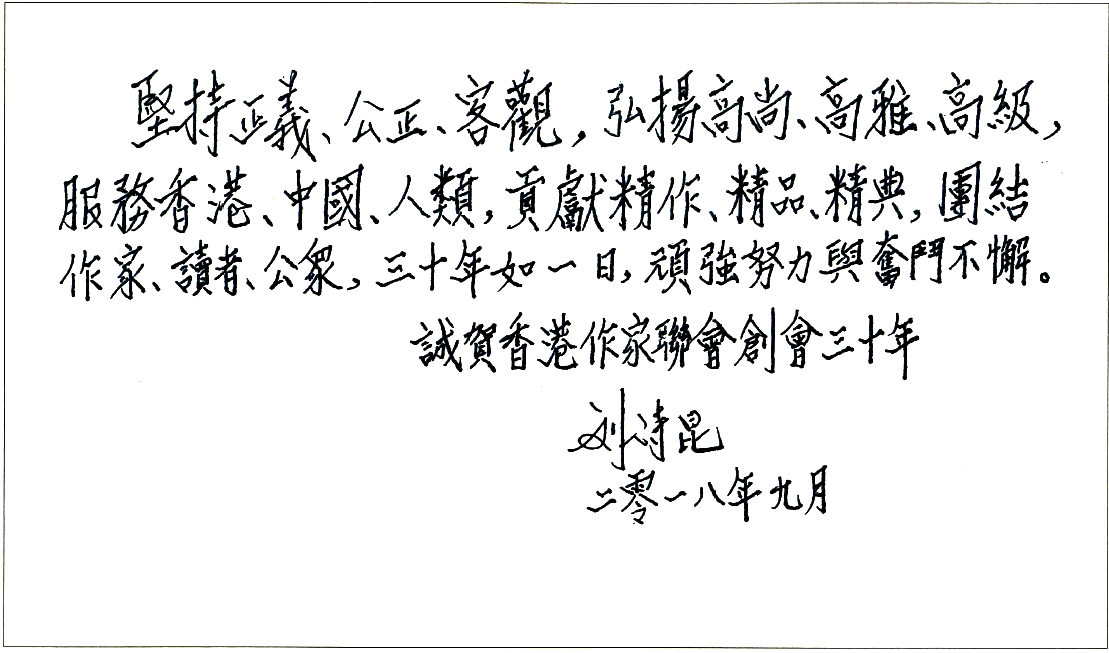 堅持正義、公正、客觀，弘揚高尚、高雅、高級，
服務香港、中國、人類，貢獻精作、精品、精典，團結
作家、讀者、公眾，三十年如一日，頑強努力與奮鬥不懈。
誠賀香港作家聯會創會三十年
刘诗昆
二零一八年九月